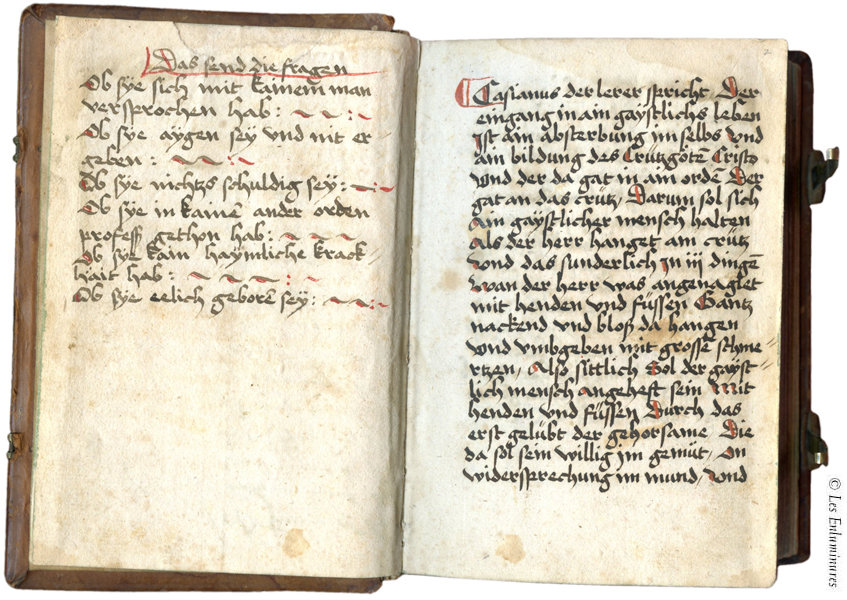 Das send die fragen
Ob sye sich mit kainem man
versprochen hab:
Ob sye aygen sey vnd nit er-
geben:
Ob sye nichtzs schuldig sey:
Ob sye in kainē ander orden
professz gethon hab:
Ob sye kain haymliche kranck-
hait hab:
Ob sye eelich geborē sey:
2
Casianus der lerer spricht Der
eingang in ain gaystlichs leben
ist ain absterbung im selbs vnd
ain bildung des Crützgotē Cristo
vnd der da gat in ain ordē Der
gat an das crütz, Darum sol sich
Ain gaystlicher mensch halten
Als der herr hanget am crütz
vnd das sunderlich in iij dingē
wan der herr was angenaglet
mit henden vnd füssen Gantz
nackend vnd bloß da hangen
vnd vmbgeben mit grossē schme-
rtzen, Also sittlich Sol der gayst-
lich mensch angeheft sein Mit
henden vnd füssen Durch das
erst gelübt der gehorsame, Die
da sol sein willig im gemüt, On
widersprechung im mund, vnd
© Les Enluminures